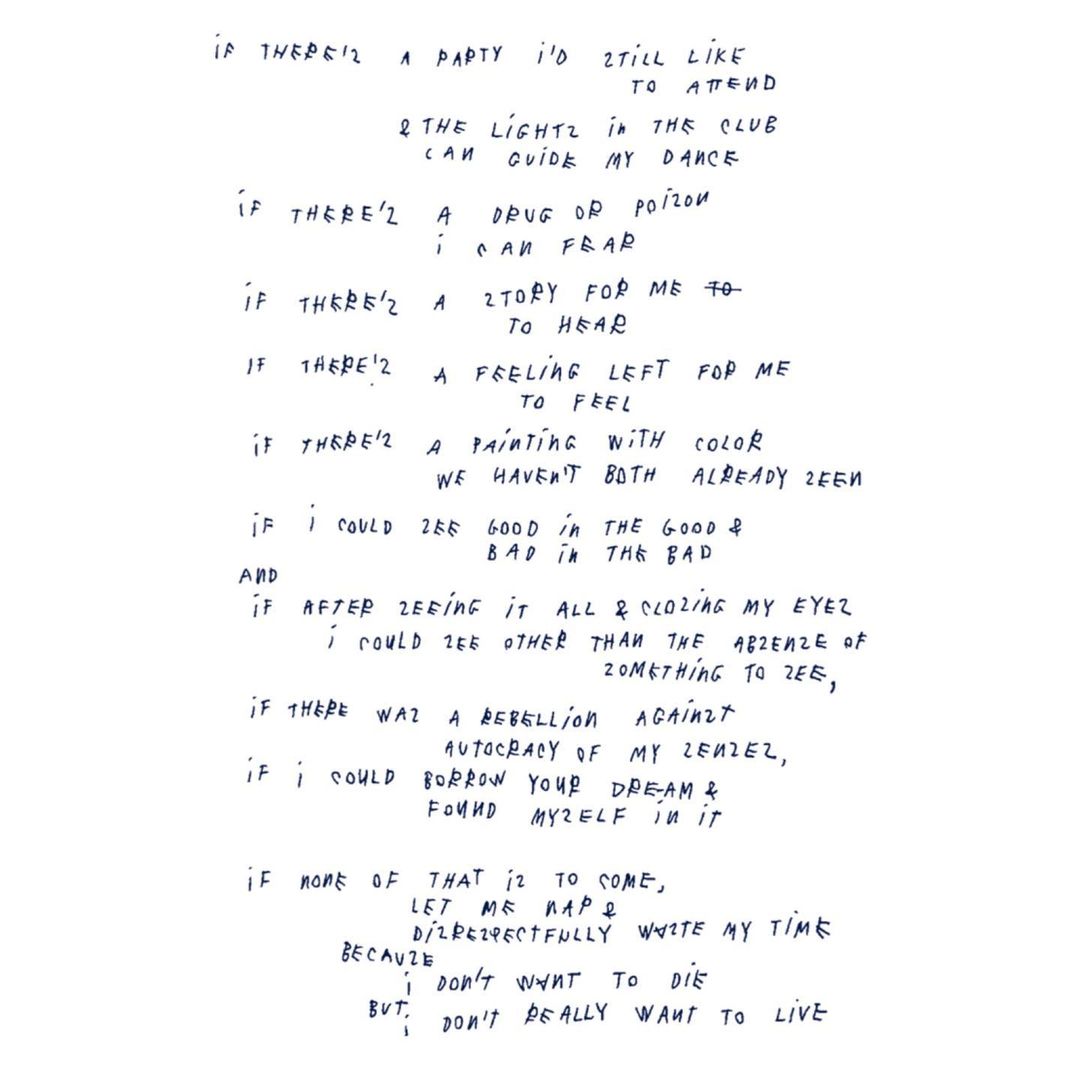 iF THERE'2 A PARTY i'D 2TiLL LiKE
TO ATTEND
& THE LiGHT2 in THE CLUB
CAN GUiDE MY DANCE
iF THERE'2 A DRUG OR POi2ON
i CAN FEAR
iF THERE'2 A 2TORY FOR ME TO
TO HEAR
IF THERE'2 A FEELiNG LEFT FOR ME
TO FEEL
iF THERE'2 A PAiNTiNG WiTH COLOR
WE HAVEN'T BOTH ALREADY 2EEN
iF i COULD 2EE GOOD in THE GOOD &
BAD in THE BAD
AND
iF AFTER 2EEiNG iT ALL & CLO2iNG MY EYE2
i COULD 2EE OTHER THAN THE AB2EN2E OF
2OMETHiNG TO 2EE,
iF THERE WA2 A REBELLiON AGAiN2T
AUTOCRACY OF MY 2EN2E2,
iF i COULD BORROW YOUR DREAM &
FOUND MY2ELF iN iT
iF nonE OF THAT i2 TO COME,
LET ME NAP &
Di2RE2PECTFULLY WA2TE MY TiME
BECAU2E
i DON'T WANT TO DiE
BUT
i DON'T REALLY WANT TO LiVE